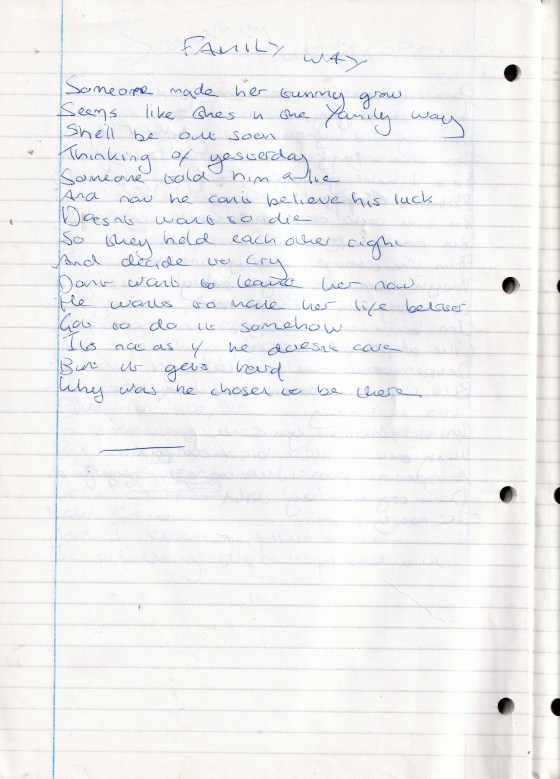 FAMILY WAY
Someone made her tummy grow
Seems like shes n the family way
She'll be out soon
Thinking of yesterday
Someone told him a lie
And now he can't believe his luck
Doesnt want to die
So they hold each other tight
And decide to cry
Dont want to leave her now
He wants to make her life better
Got to do it somehow
Its not as if he doesnt care
But it gets hard
Why was he chosen to be there